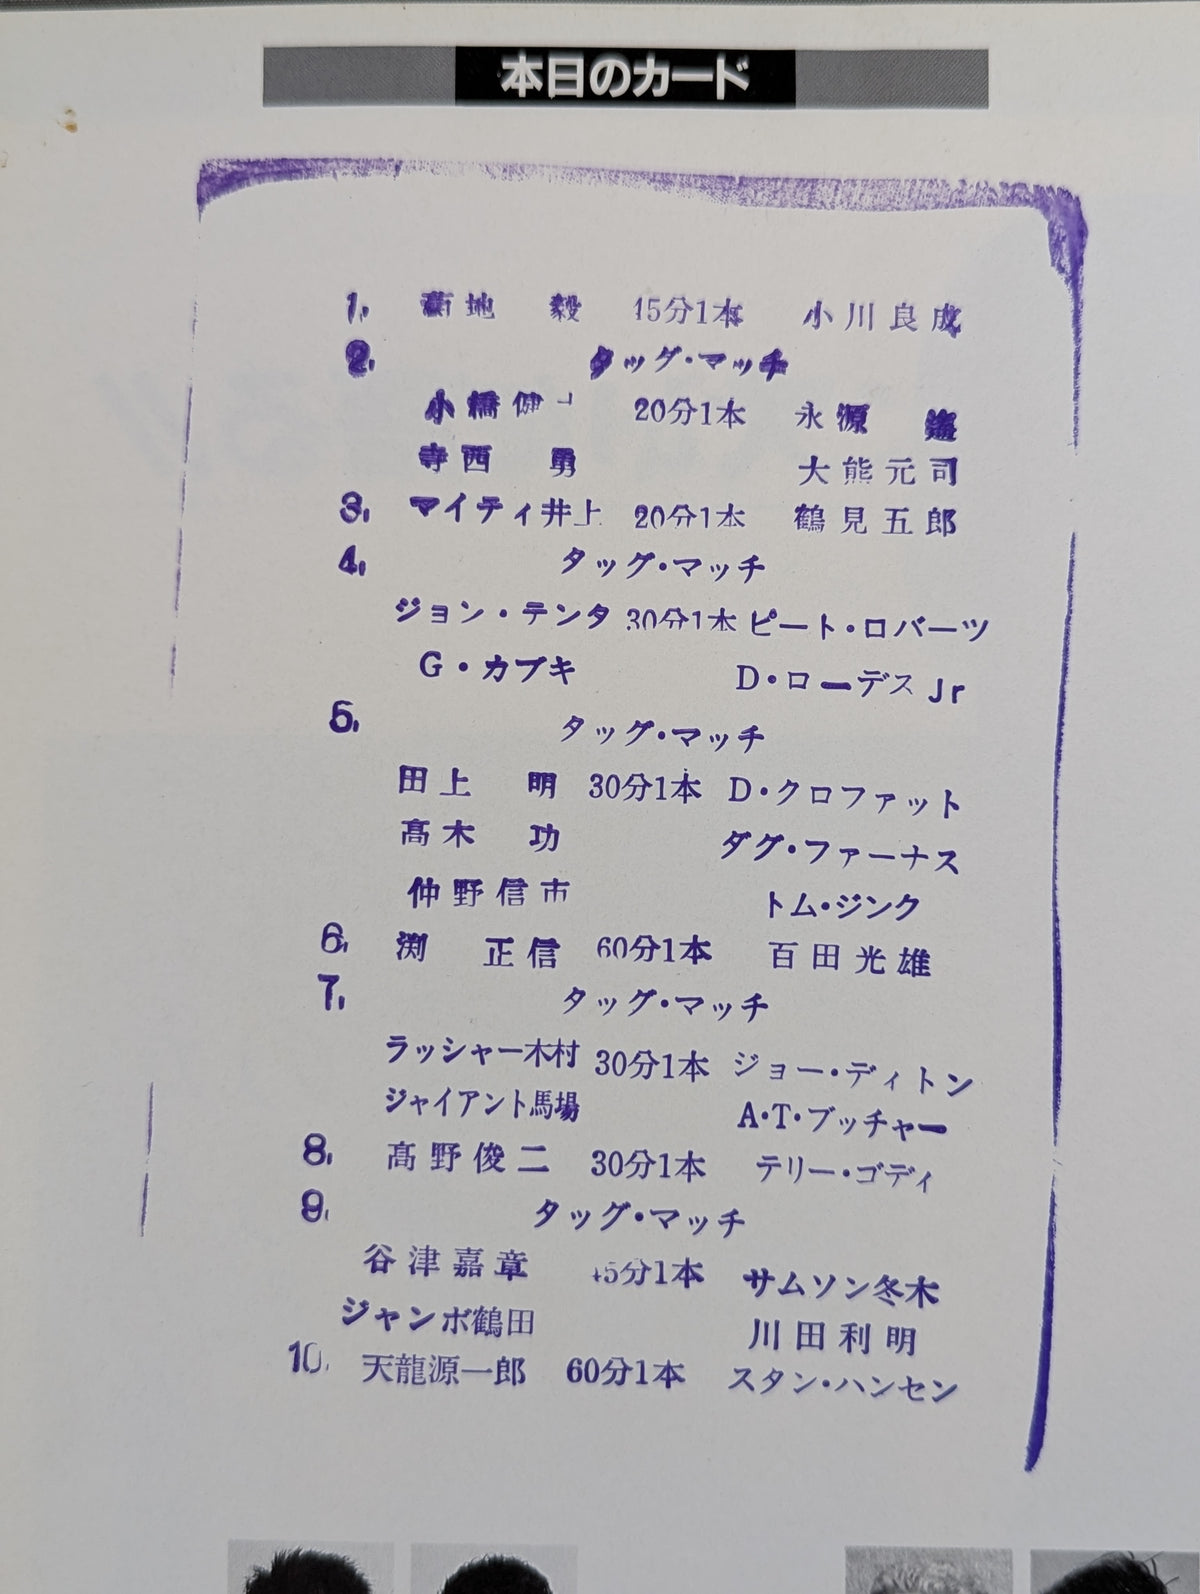 本日のカード
1. 菊地 毅 15分1本 小川良成
2. タッグ・マッチ
小橋健 20分1本 永源 遙
寺西 勇 大熊元司
3. マイティ井上 20分1本 鶴見五郎
4. タッグ・マッチ
ジョン・テンタ 30分1本 ピート・ロバーツ
G・カブキ D・ローデスJr
5. タッグ・マッチ
田上 明 30分1本 D・クロファット
髙木 功 ダグ・ファーナス
仲野信市 トム・ジンク
6. 渕 正信 60分1本 百田光雄
7. タッグ・マッチ
ラッシャー木村 30分1本 ジョー・ディトン
ジャイアント馬場 A・T・ブッチャー
8. 髙野俊二 30分1本 テリー・ゴディ
9. タッグ・マッチ
谷津嘉章 45分1本 サムソン冬木
ジャンボ鶴田 川田利明
10. 天龍源一郎 60分1本 スタン・ハンセン